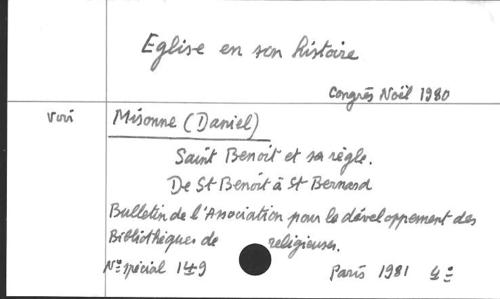 Eglise en son histoire
Congrès Noël 1980
Voir Misonne (Daniel)
Saint Benoît et sa règle.
De St Benoît à St Bernard
Bulletin de l'Association pour le développement des
Bibliothèques de religieuses.
N° spécial 149
Paris 1981 4°